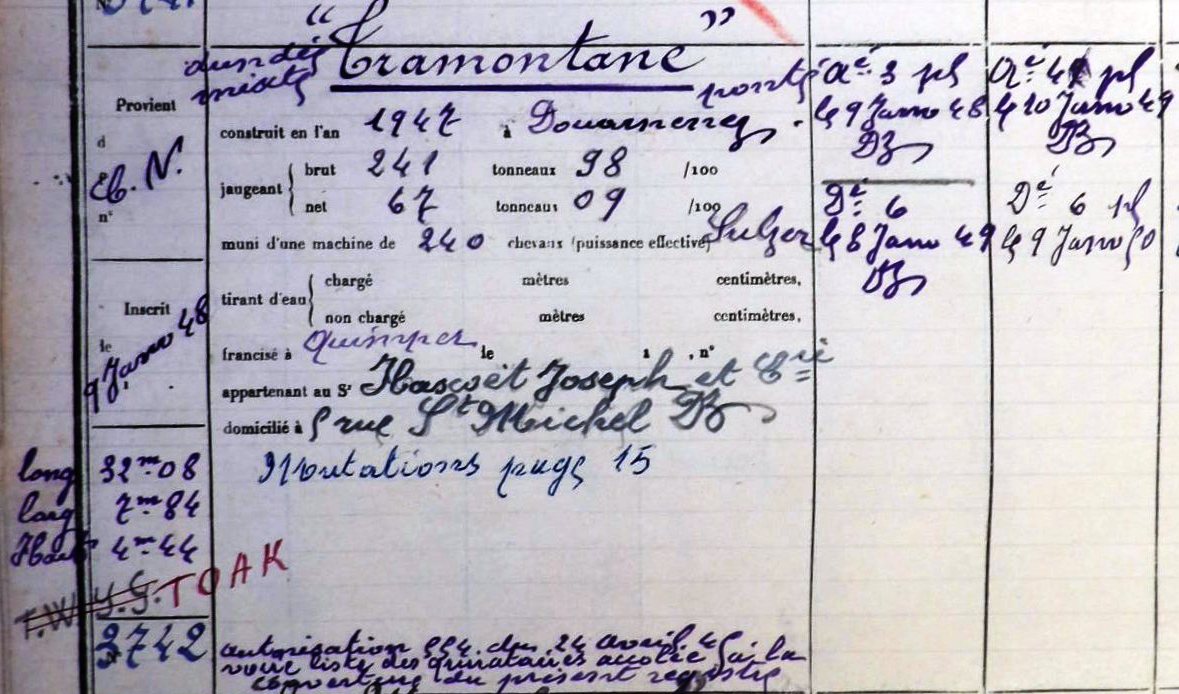 "Tramontane"
dundée
mixte
ponté
Provient
d
Eb. N.
n°
construit en l'an 1947 à Douarnenez.
jaugeant
brut 241 tonneaux 98 /100
net 67 tonneaux 09 /100
muni d'une machine de 240 chevaux (puissance effective) Sulzer
Inscrit
le
9 Janv 48
tirant d'eau
chargé mètres centimètres,
non chargé mètres centimètres,
francisé à Quimper le 1 , n°
appartenant au Sr Hascoët Joseph et Cie
domicilié à 5 rue St Michel DZ
Mutations page 15
long 32m08
larg 7m84
Haut 4m44
T.W.Y.G. TOAK
3742
autorisation 554 du 24 avril 45
voir liste des qui accolée à la
couverture du présent registre
Ré 3 pl
le 9 Janv 48
DZ
Dé 6
le 8 Janv 49
DZ
Ré 4 pl
le 10 Janv 49
DZ
Dé 6 pl
le 9 Janv 50